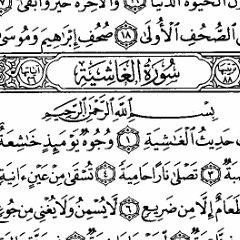 الْحَيَوٰةَ الدُّنْيَا ۝١٦ وَالْآخِرَةُ خَيْرٌ وَأَبْقَىٰ
الصُّحُفِ الْأُولَىٰ ۝١٨ صُحُفِ إِبْرَاهِيمَ وَمُوسَىٰ
سُورَةُ الْغَاشِيَةِ
بِسْمِ اللَّهِ الرَّحْمَٰنِ الرَّحِيمِ
حَدِيثُ الْغَٰشِيَةِ ۝١ وُجُوهٌ يَوْمَئِذٍ خَٰشِعَةٌ
تَصْلَىٰ نَارًا حَامِيَةً ۝٤ تُسْقَىٰ مِنْ عَيْنٍ ءَانِيَةٍ
إِلَّا مِن ضَرِيعٍ ۝٦ لَّا يُسْمِنُ وَلَا يُغْنِي مِن جُوعٍ